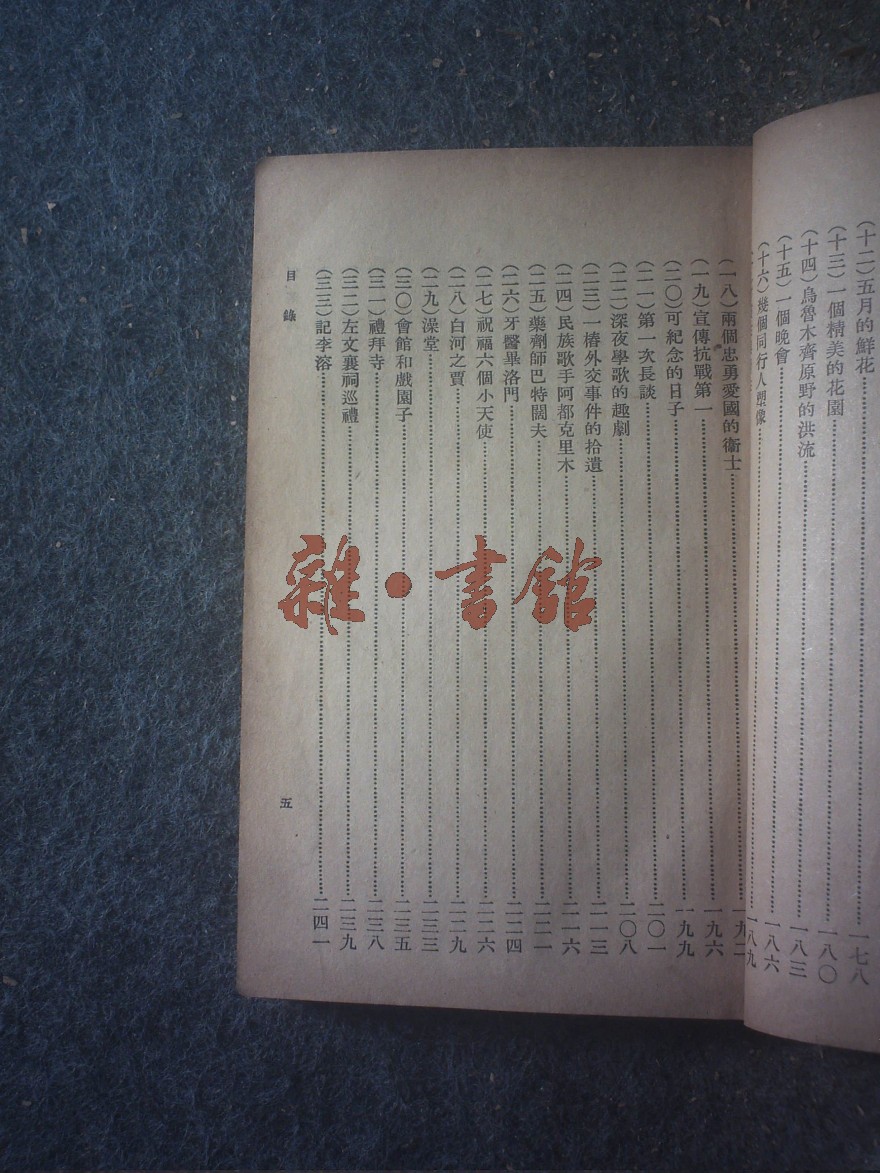 (十二)五月的鮮花……一七八
(十三)一個精美的花園……一八〇
(十四)烏魯木齊原野的洪流……一八三
(十五)一個晚會……一八六
(十六)幾個同行人票像……一八九
(一八)兩個忠勇愛國的衞士……一九二
(一九)宣傳抗戰第一……一九六
(二〇)可紀念的日子……一九九
(二一)第一次長談……二〇一
(二二)深夜學歌的趣劇……二〇八
(二三)一樁外交事件的拾遺……二一三
(二四)民族歌手阿都克里木……二一六
(二五)藥劑師巴特闊夫……二二一
(二六)牙醫畢洛門……二二四
(二七)祝福六個小天使……二二六
(二八)白河之賈……二二九
(二九)澡堂……二三三
(三〇)會館和戲園子……二三五
(三一)禮拜寺……二三八
(三二)左文襄祠巡禮……二三九
(三三)記李溶……二四一
目錄
五
雜·書館